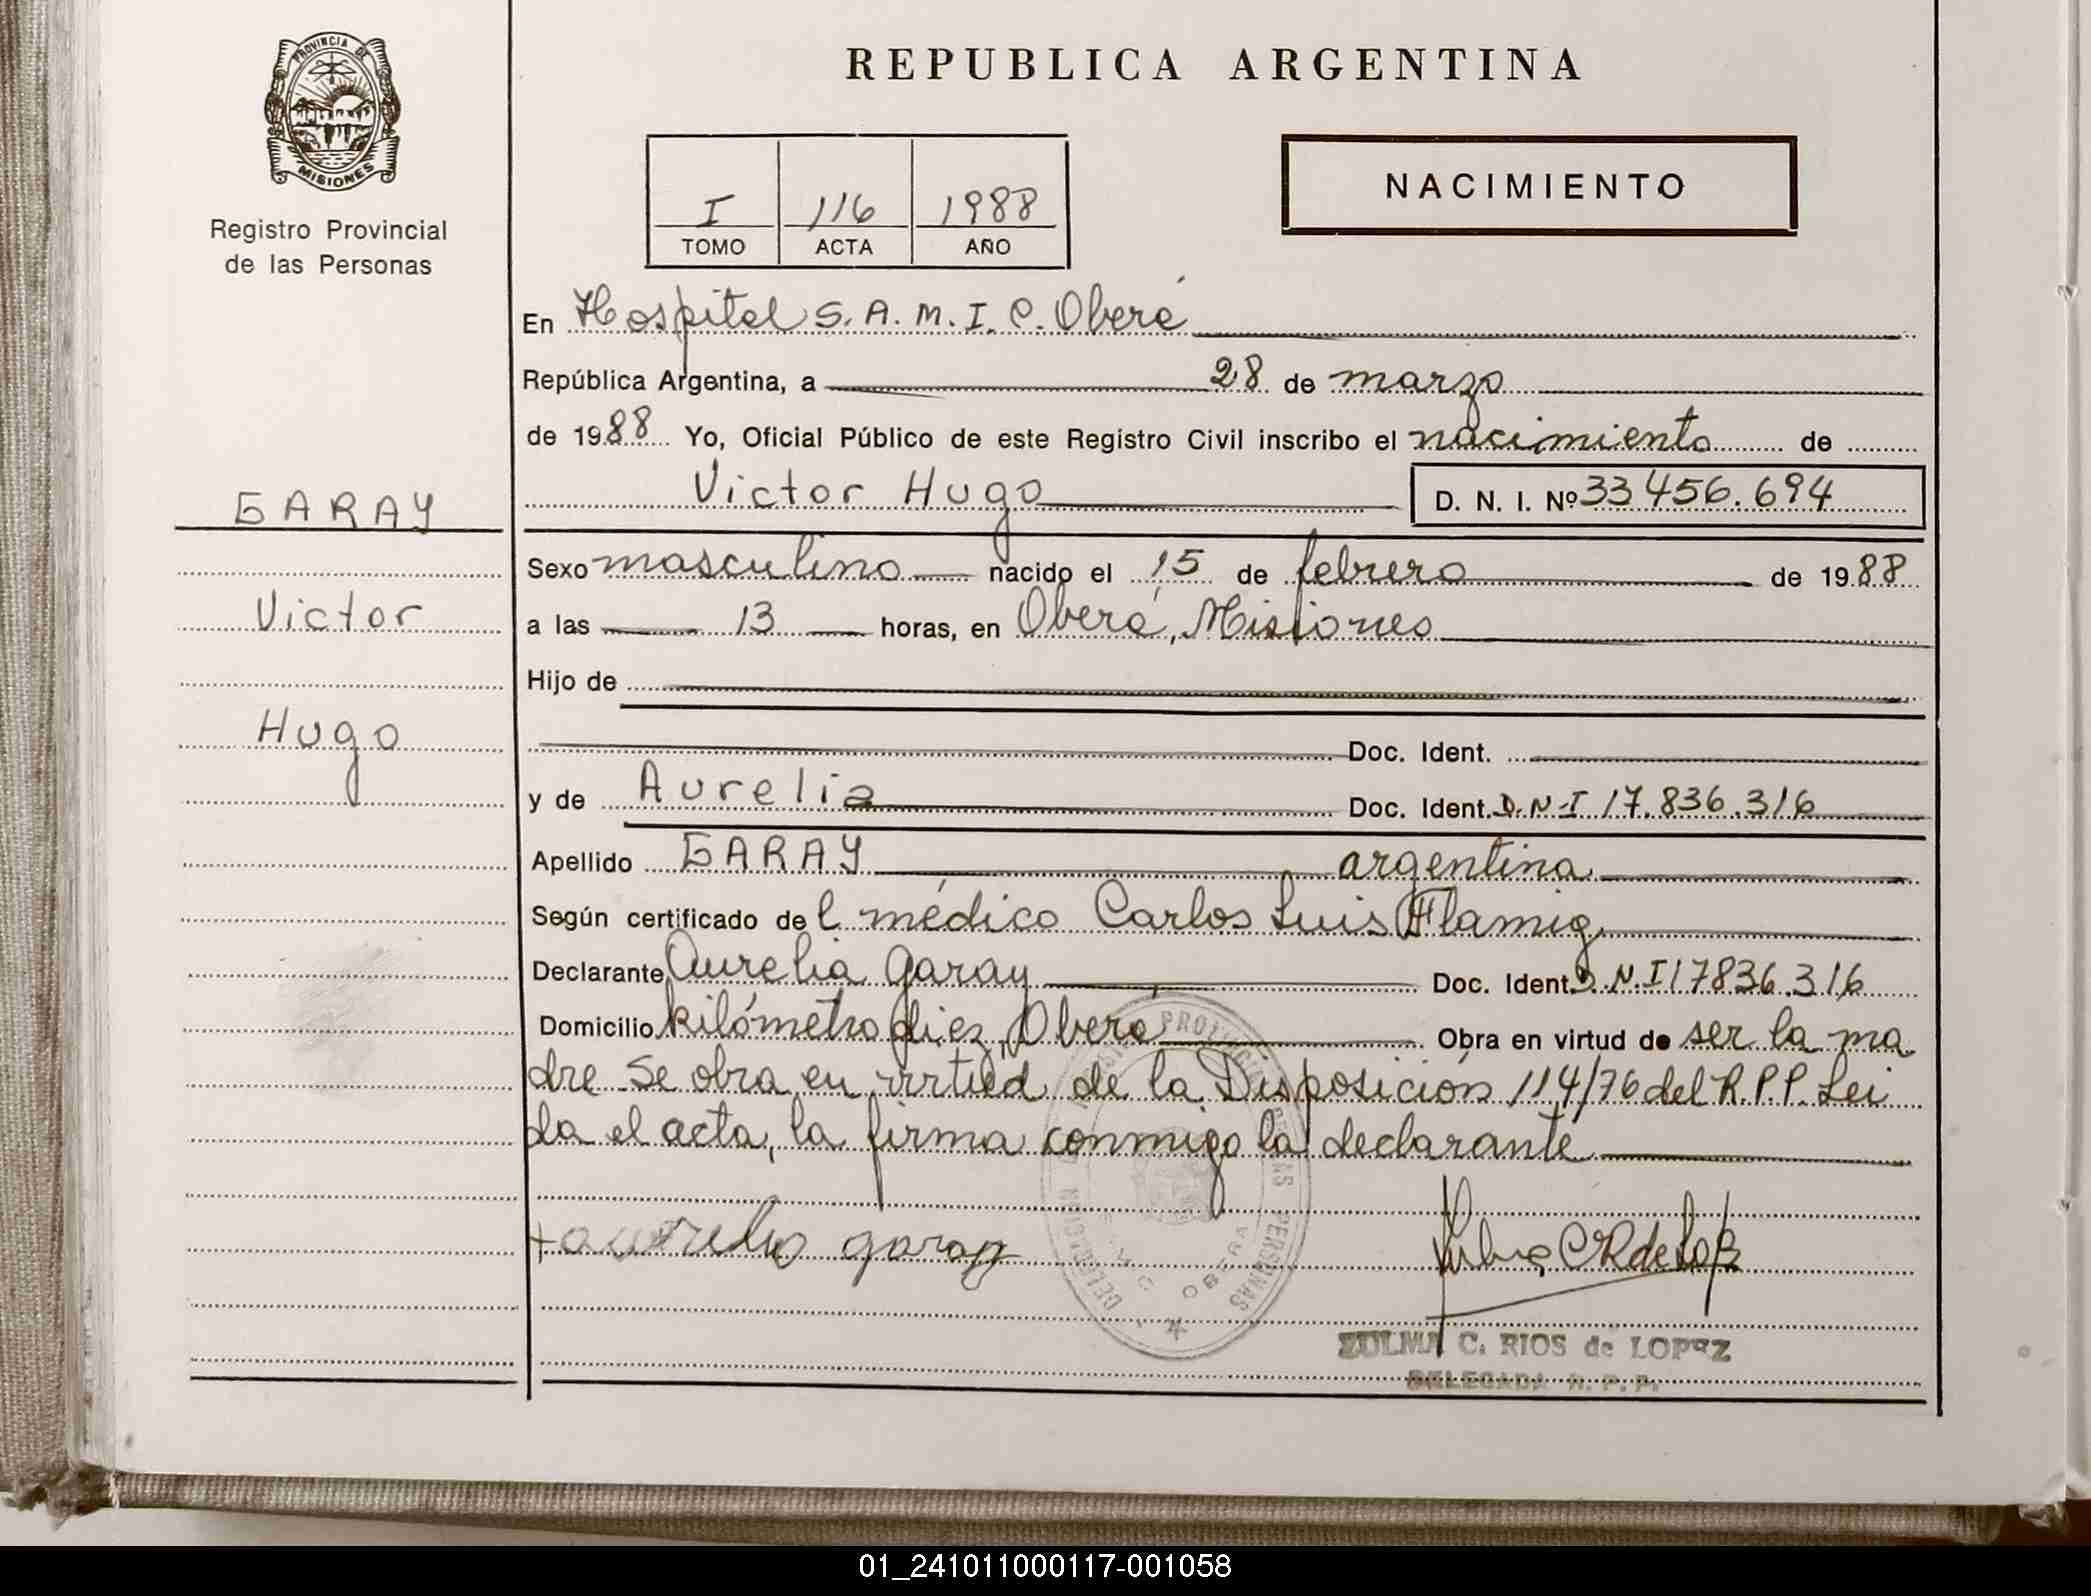 PROVINCIA DE
MISIONES
Registro Provincial
de las Personas
GARAY
Victor
Hugo
REPUBLICA ARGENTINA
I 116 1988
TOMO ACTA AÑO
NACIMIENTO
En Hospital S. A. M. I. C. Oberá
República Argentina, a 28 de marzo
de 1988 Yo, Oficial Público de este Registro Civil inscribo el nacimiento de
Victor Hugo D. N. I. Nº 33456.694
Sexo masculino nacido el 15 de febrero de 1988
a las 13 horas, en Oberá, Misiones
Hijo de
Doc. Ident.
y de Aurelia Doc. Ident. D.N.I 17.836.316
Apellido GARAY argentina
Según certificado del médico Carlos Luis Flamig
Declarante Aurelia Garay Doc. Ident. D.N.I 17836.316
Domicilio kilómetro diez, Oberá Obra en virtud de ser la ma
dre Se obra en virtud de la Disposición 114/76 del R.P.P. Lei
da el acta, la firma conmigo la declarante
+ aurelia garay
ZULMA C. RIOS de LOPEZ
DELEGADA R. P. P.
REGISTRO PROVINCIAL DE LAS PERSONAS
OBERA
01_241011000117-001058